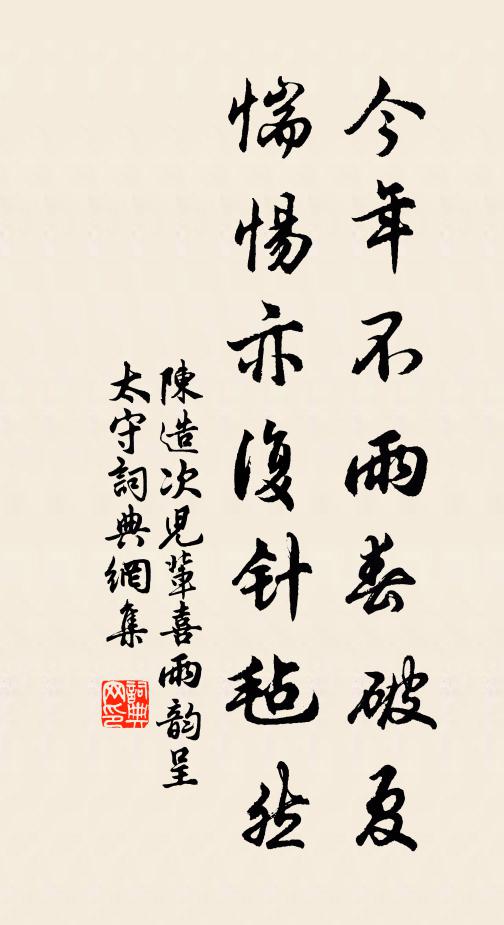 今年不雨春破夏
惴惕亦復针毡然
陳造次児輩喜雨韵呈
太守詞典網集
詞典网印